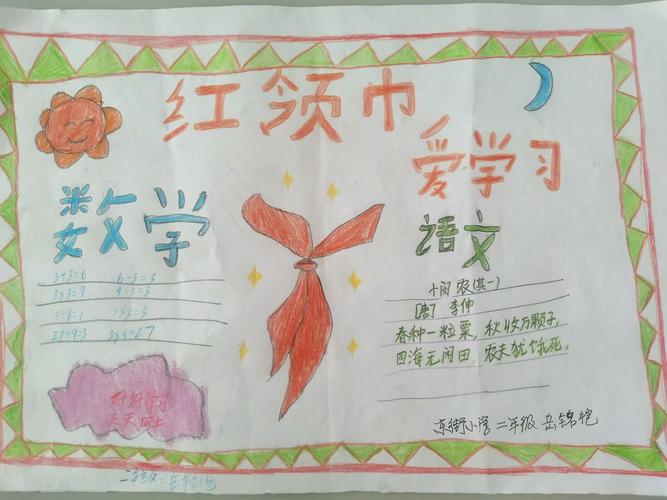 红领巾
爱学习
数学
3+3=6 6-3=3
3×3=9 9÷3=3
3÷3=1 1×3=3
27÷9=3 3×9=27
好好学习
天天向上
语文
悯农(其一)
[唐] 李绅
春种一粒粟,秋收万颗子,
四海无闲田,农夫犹饿死。
京街小学 二年级 岳锦恺
二年级: